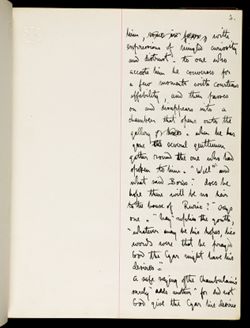 2.
him, with
expressions of mingled curiosity
and distrust. to one who
accosts him he converses for
a few moments with courteous
affability, and then passes
on and disappears into a
chamber that opens onto the
gallery. when he has
gone the several gentlemen
gather round the one who had
spoken to him. "Well" and
what said Boris? does he
hope there will be no heir
to the house of Ruric?" says
one. "Nay" replies the youth
"whatever may be his hopes, his
words were that he prayed
God the Czar might have his
desires."
A safe saying of the Chamberlain's
adds another "for did not
God give the Czar his desires